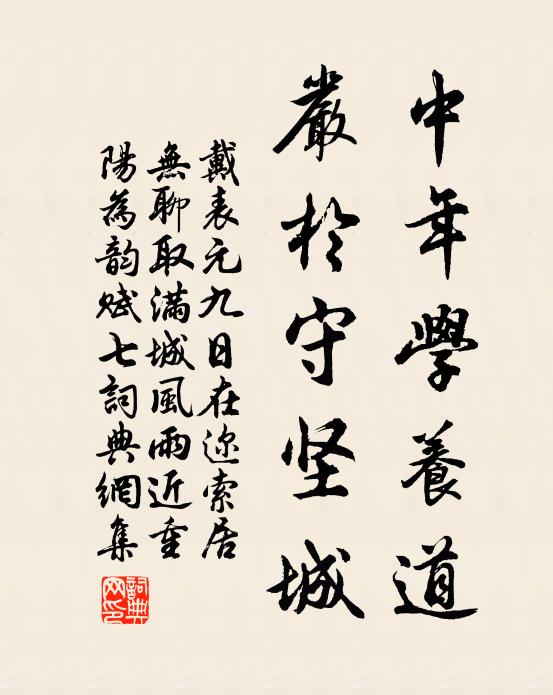 中年學養道
嚴於守坚城
戴表元九日在迩索居
無聊取滿城風雨近重
陽為韵賦七詞典網集
詞典網印